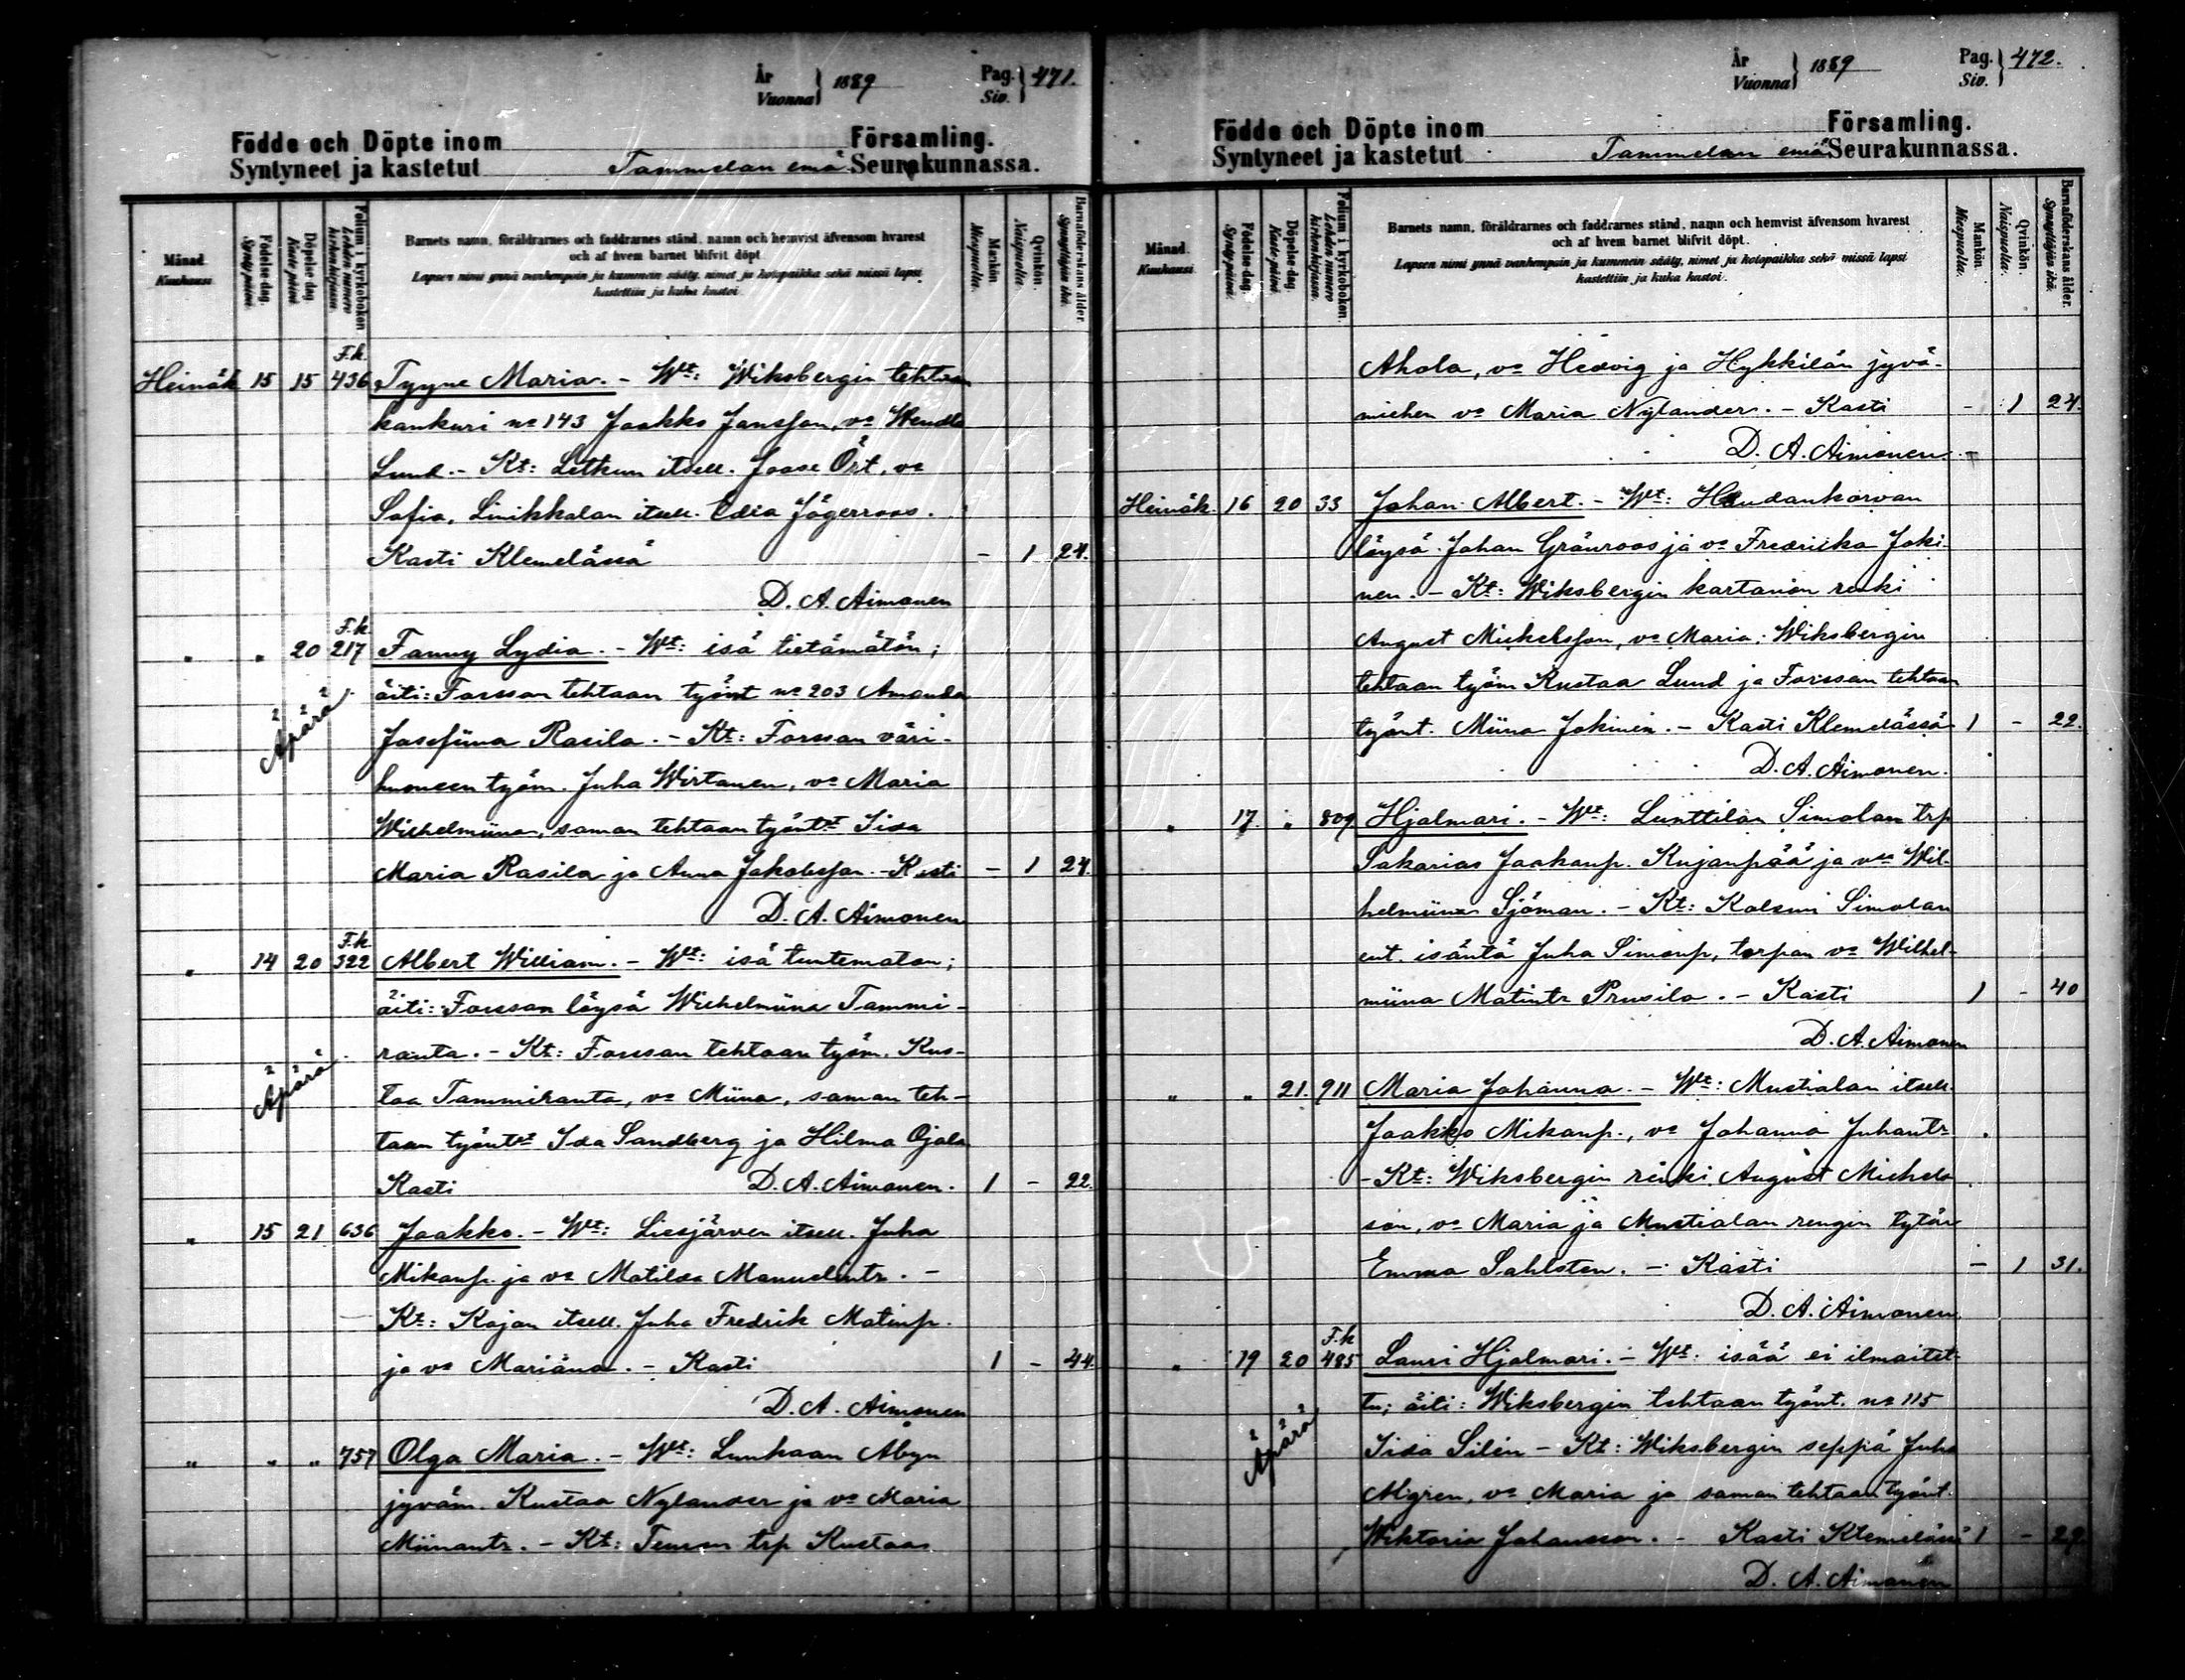 År
Vuonna } 1889
Pag.
Siv. } 471.
Födde och Döpte inom Församling.
Syntyneet ja kastetut Tammelan emä Seurakunnassa.
Månad.
Kuukausi.
Födelse-dag.
Synty-päivä.
Döpelse-dag.
Kaste-päivä.
Folium i kyrkoboken.
Lehden numero kirkonkirjassa.
Barnets namn, föräldrarnes och faddrarnes stånd, namn och hemvist äfvensom hvarest
och af hvem barnet blifvit döpt.
Lapsen nimi ynnä vanhempain ja kummein sääty, nimet ja kotopaikka sekä missä lapsi
kastettiin ja kuka kastoi.
Mankön.
Miespuolta.
Qvinkön.
Naispuolta.
Barnaföderskans ålder.
Synnyttäjän ikä.
F.k.
Heinäk 15 15 436 Tyyne Maria. - Wt: Wiksbergin tehtaan
kankuri no 143 Jaakko Jansson, vo Wendla
Lund. - Kt: Letkun itsell. Joose Ört, vo
Sofia, Linikkalan itsell. Edla Jägerroos.
Kasti Klemelässä - 1 24.
D. A. Aimonen
F.k.
" " 20 217 Fanny Lydia. - Wt: isä tietämätön;
äiti: Forssan tehtaan työnt no 203 Amanda
Äpärä
Josefiina Rasila. - Kt: Forssan väri-
huoneen työm. Juha Wirtanen, vo Maria
Wilhelmiina, saman tehtaan työntt Iida
Maria Rasila ja Anna Jakobsson. - Kasti - 1 24.
D. A. Aimonen
F.k.
" 14 20 322 Albert William. - Wt: isä tuntematon;
äiti: Forssan löysä Wilhelmiina Tammi-
ranta. - Kt: Forssan tehtaan työm. Kus-
Äpärä
taa Tammiranta, vo Miina, saman teh-
taan työntt Ida Sandberg ja Hilma Ojala
Kasti D. A. Aimonen. 1 - 22.
" 15 21 636 Jaakko. - Wt: Liesjärven itsell. Juha
Mikanp. ja vo Matilda Manuelintr. -
Kt: Kojan itsell. Juha Fredrik Matinp.
ja vo Mariana. - Kasti 1 - 44.
D. A. Aimonen
" " " 757 Olga Maria. - Wt: Lunkaan Åbyn
jyväm. Kustaa Nylander ja vo Maria
Miinantr. - Kt: trp Kustaa
År
Vuonna } 1889
Pag.
Siv. } 472.
Födde och Döpte inom Församling.
Syntyneet ja kastetut Tammelan emä Seurakunnassa.
Månad.
Kuukausi.
Födelse-dag.
Synty-päivä.
Döpelse-dag.
Kaste-päivä.
Folium i kyrkoboken.
Lehden numero kirkonkirjassa.
Barnets namn, föräldrarnes och faddrarnes stånd, namn och hemvist äfvensom hvarest
och af hvem barnet blifvit döpt.
Lapsen nimi ynnä vanhempain ja kummein sääty, nimet ja kotopaikka sekä missä lapsi
kastettiin ja kuka kastoi.
Mankön.
Miespuolta.
Qvinkön.
Naispuolta.
Barnaföderskans ålder.
Synnyttäjän ikä.
Ahola, vo Hedvig ja Hykkilän jyvä-
miehen vo Maria Nylander. - Kasti - 1 24.
D. A. Aimonen. -
Heinäk. 16 20 33 Johan Albert. - Wt: Haudankorvan
löysä Johan Grönroos ja vo Fredriika Joki-
nen. - Kt: Wiksbergin kartanon renki
August Mickelsson, vo Maria; Wiksbergin
tehtaan työm Kustaa Lund ja Forssan tehtaan
työnt. Miina Jokinen. - Kasti Klemelässä 1 - 22.
D. A. Aimonen.
" 17. " 809 Hjalmari. - Wt: Lunttilan Simolan trp
Sakarias Jaakonp. Kujanpää ja vo Wil-
helmiina Sjöman. - Kt: Kalsun Simolan
ent. isäntä Juha Simonp, torpan vo Wilhel-
miina Matintr Prusila. - Kasti 1 - 40
D. A. Aimonen
" " 21. 911 Maria Johanna. - Wt: Mustialan itsell.
Jaakko Mikanp., vo Johanna Juhantr.
- Kt: Wiksbergin renki August Michels-
son, vo Maria ja Mustialan rengin tytär
Emma Sahlsten. - Kasti - 1 31.
D. A. Aimonen.
F.k
" 19 20 485 Lauri Hjalmari. - Wt: isää ei ilmaitet-
tu; äiti: Wiksbergin tehtaan työnt. no 115
Äpärä
Iida Silén - Kt: Wiksbergin seppä Juha
Algren, vo Maria ja saman tehtaan työnt.
Wiktoria Johansson. - Kasti Klemelässä 1 - 29.
D. A. Aimonen